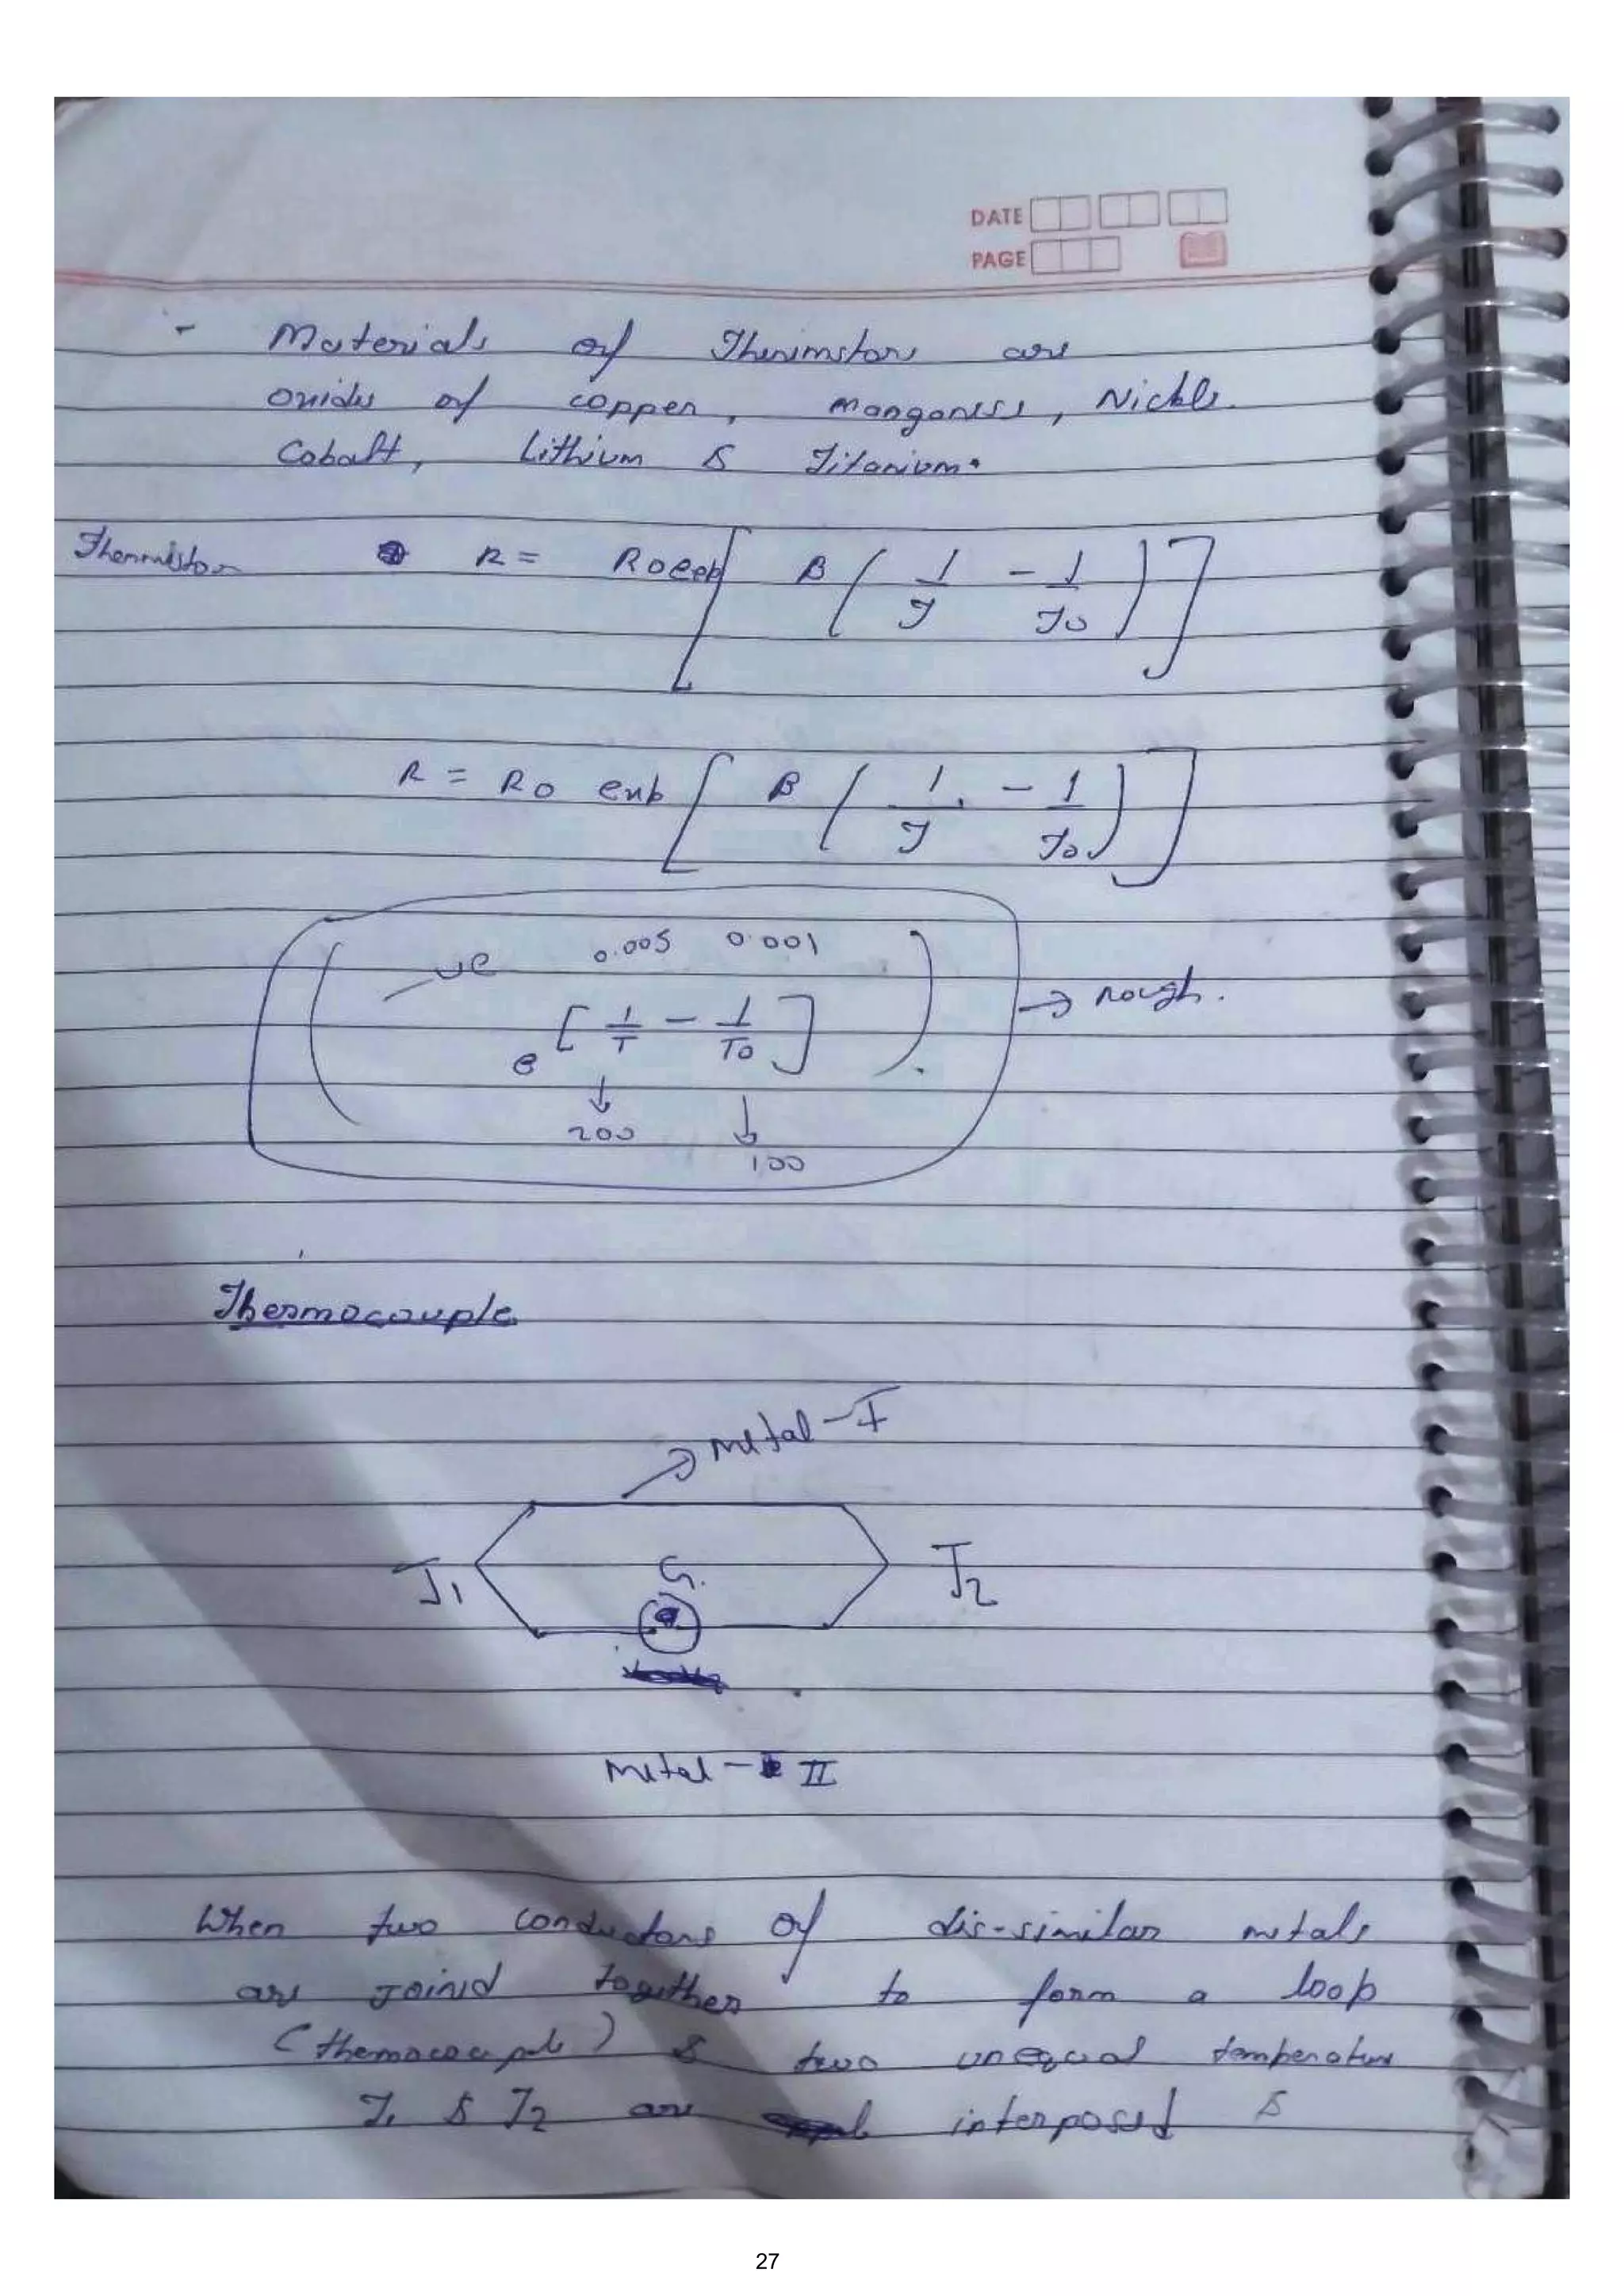 DATE
PAGE
- Materials of Thermistors are
oxides of copper, manganese, Nickle
Cobalt, Lithium & Titanium.
Thermistor R = Ro exp [ β ( 1/T - 1/T0 ) ]
R = R0 exp [ β ( 1/T - 1/T0 ) ]
-ve 0.005 0.001
e [ 1/T - 1/T0 ] → rough.
↓ ↓
200
100
Thermocouple
→ Metal-I
J1 G. J2
Metal - II
When two conductors of dis-similar metals
are Joined together to form a loop
(themocouple) & two unequal temperature
T1 & T2 are interposed &
27